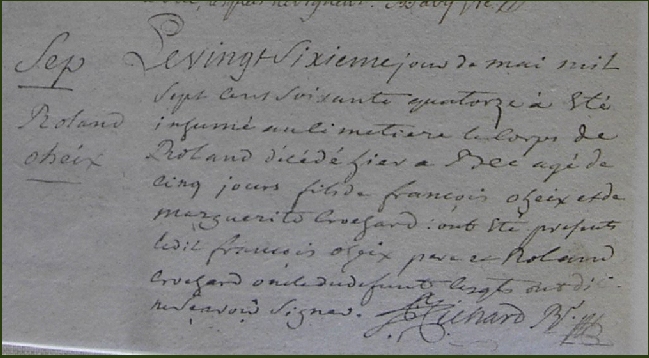 Sep
Roland
oheix
Le vingt Sixieme jour de mai mil
sept cent soixante quatorze à Eté
inhumé au Cimetiere le Corps de
Roland décédé hier a agé de
cinq jours fils de françois oheix et de
marguerite Crochard : ont Eté presents
ledit françois oheix pere et Roland
Crochard oncle du defunt lesqls ont di
ne Scavoir Signer. Richard